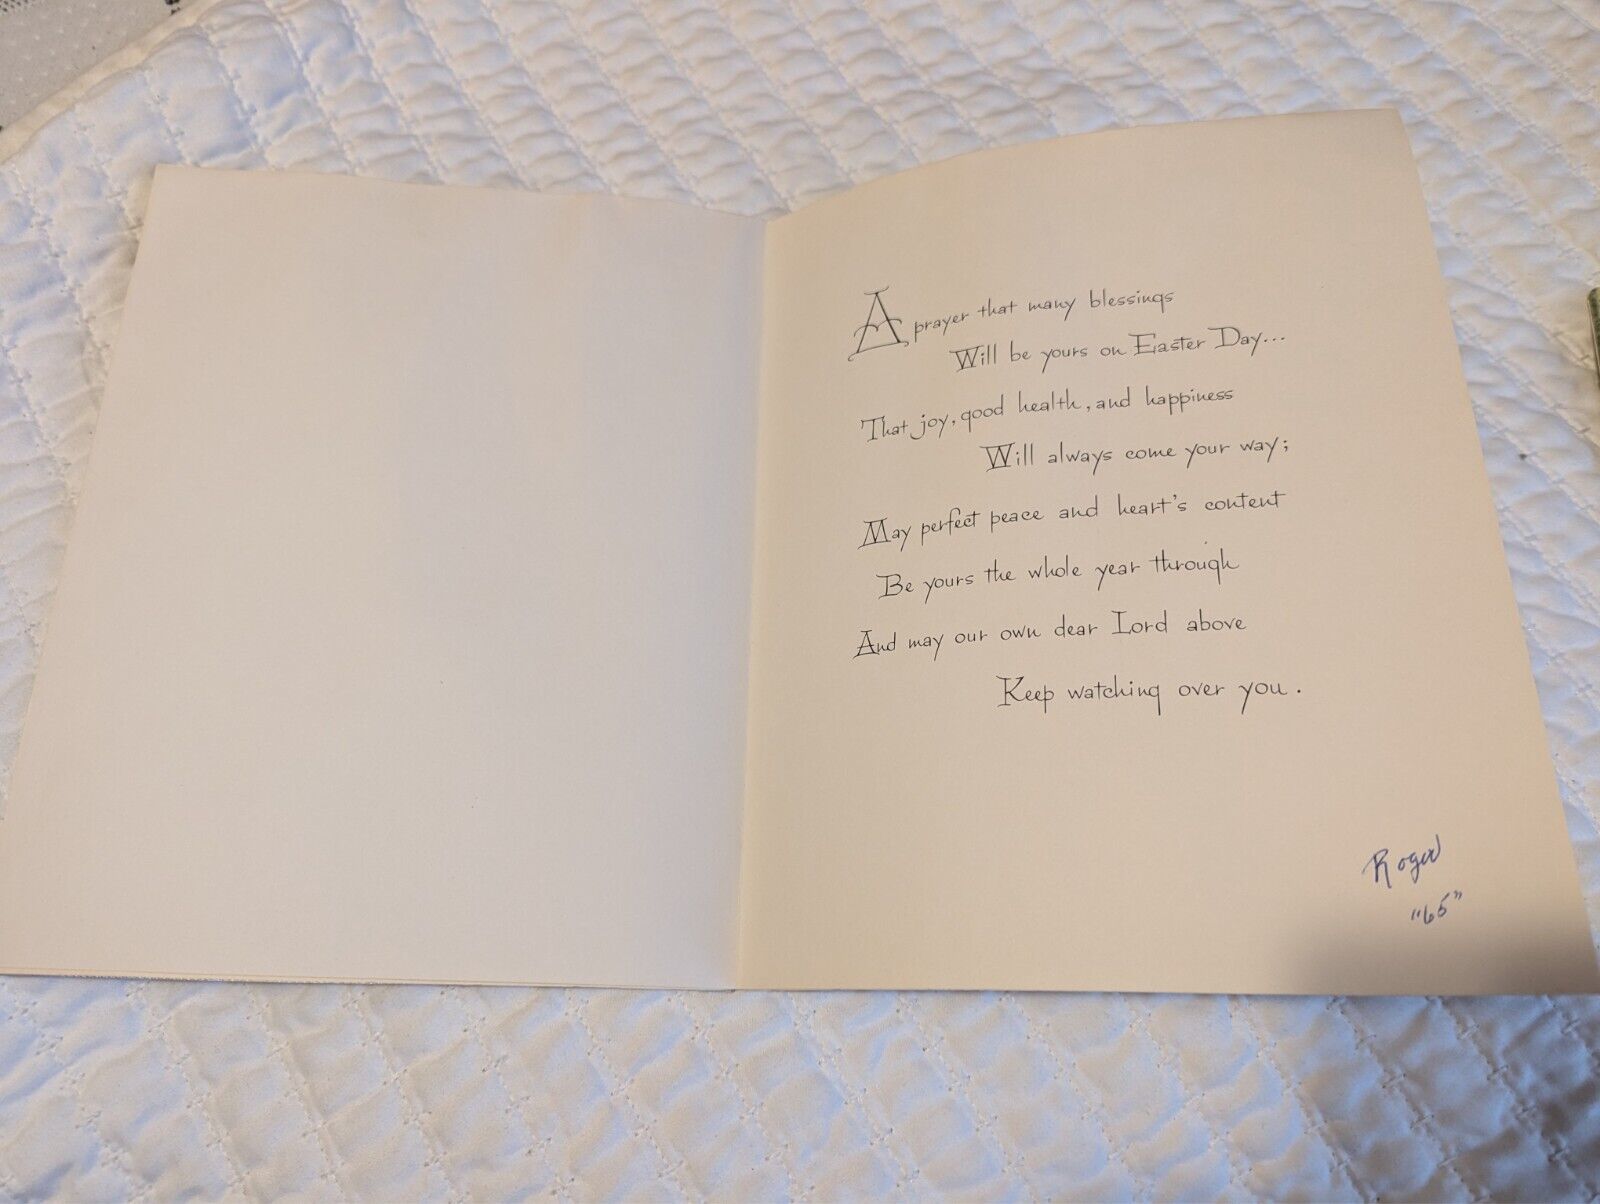 A prayer that many blessings
Will be yours on Easter Day...
That joy, good health, and happiness
Will always come your way;
May perfect peace and heart's content
Be yours the whole year through
And may our own dear Lord above
Keep watching over you.
Roger
"65"